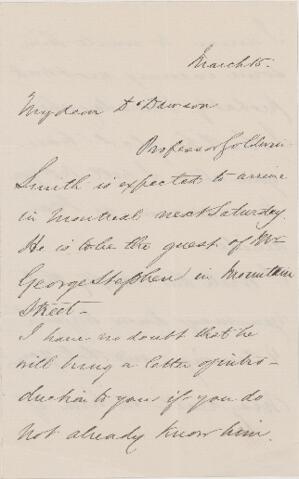 March 15.
My dear Dr Dawson
Professor Goldwin
Smith is expected to arrive
in Montreal next Saturday.
He is to be the guest of Mr
George Stephen in Mountain
Street—
I have no doubt that he
will bring a letter of intro-
duction to you if you do
not already know him.